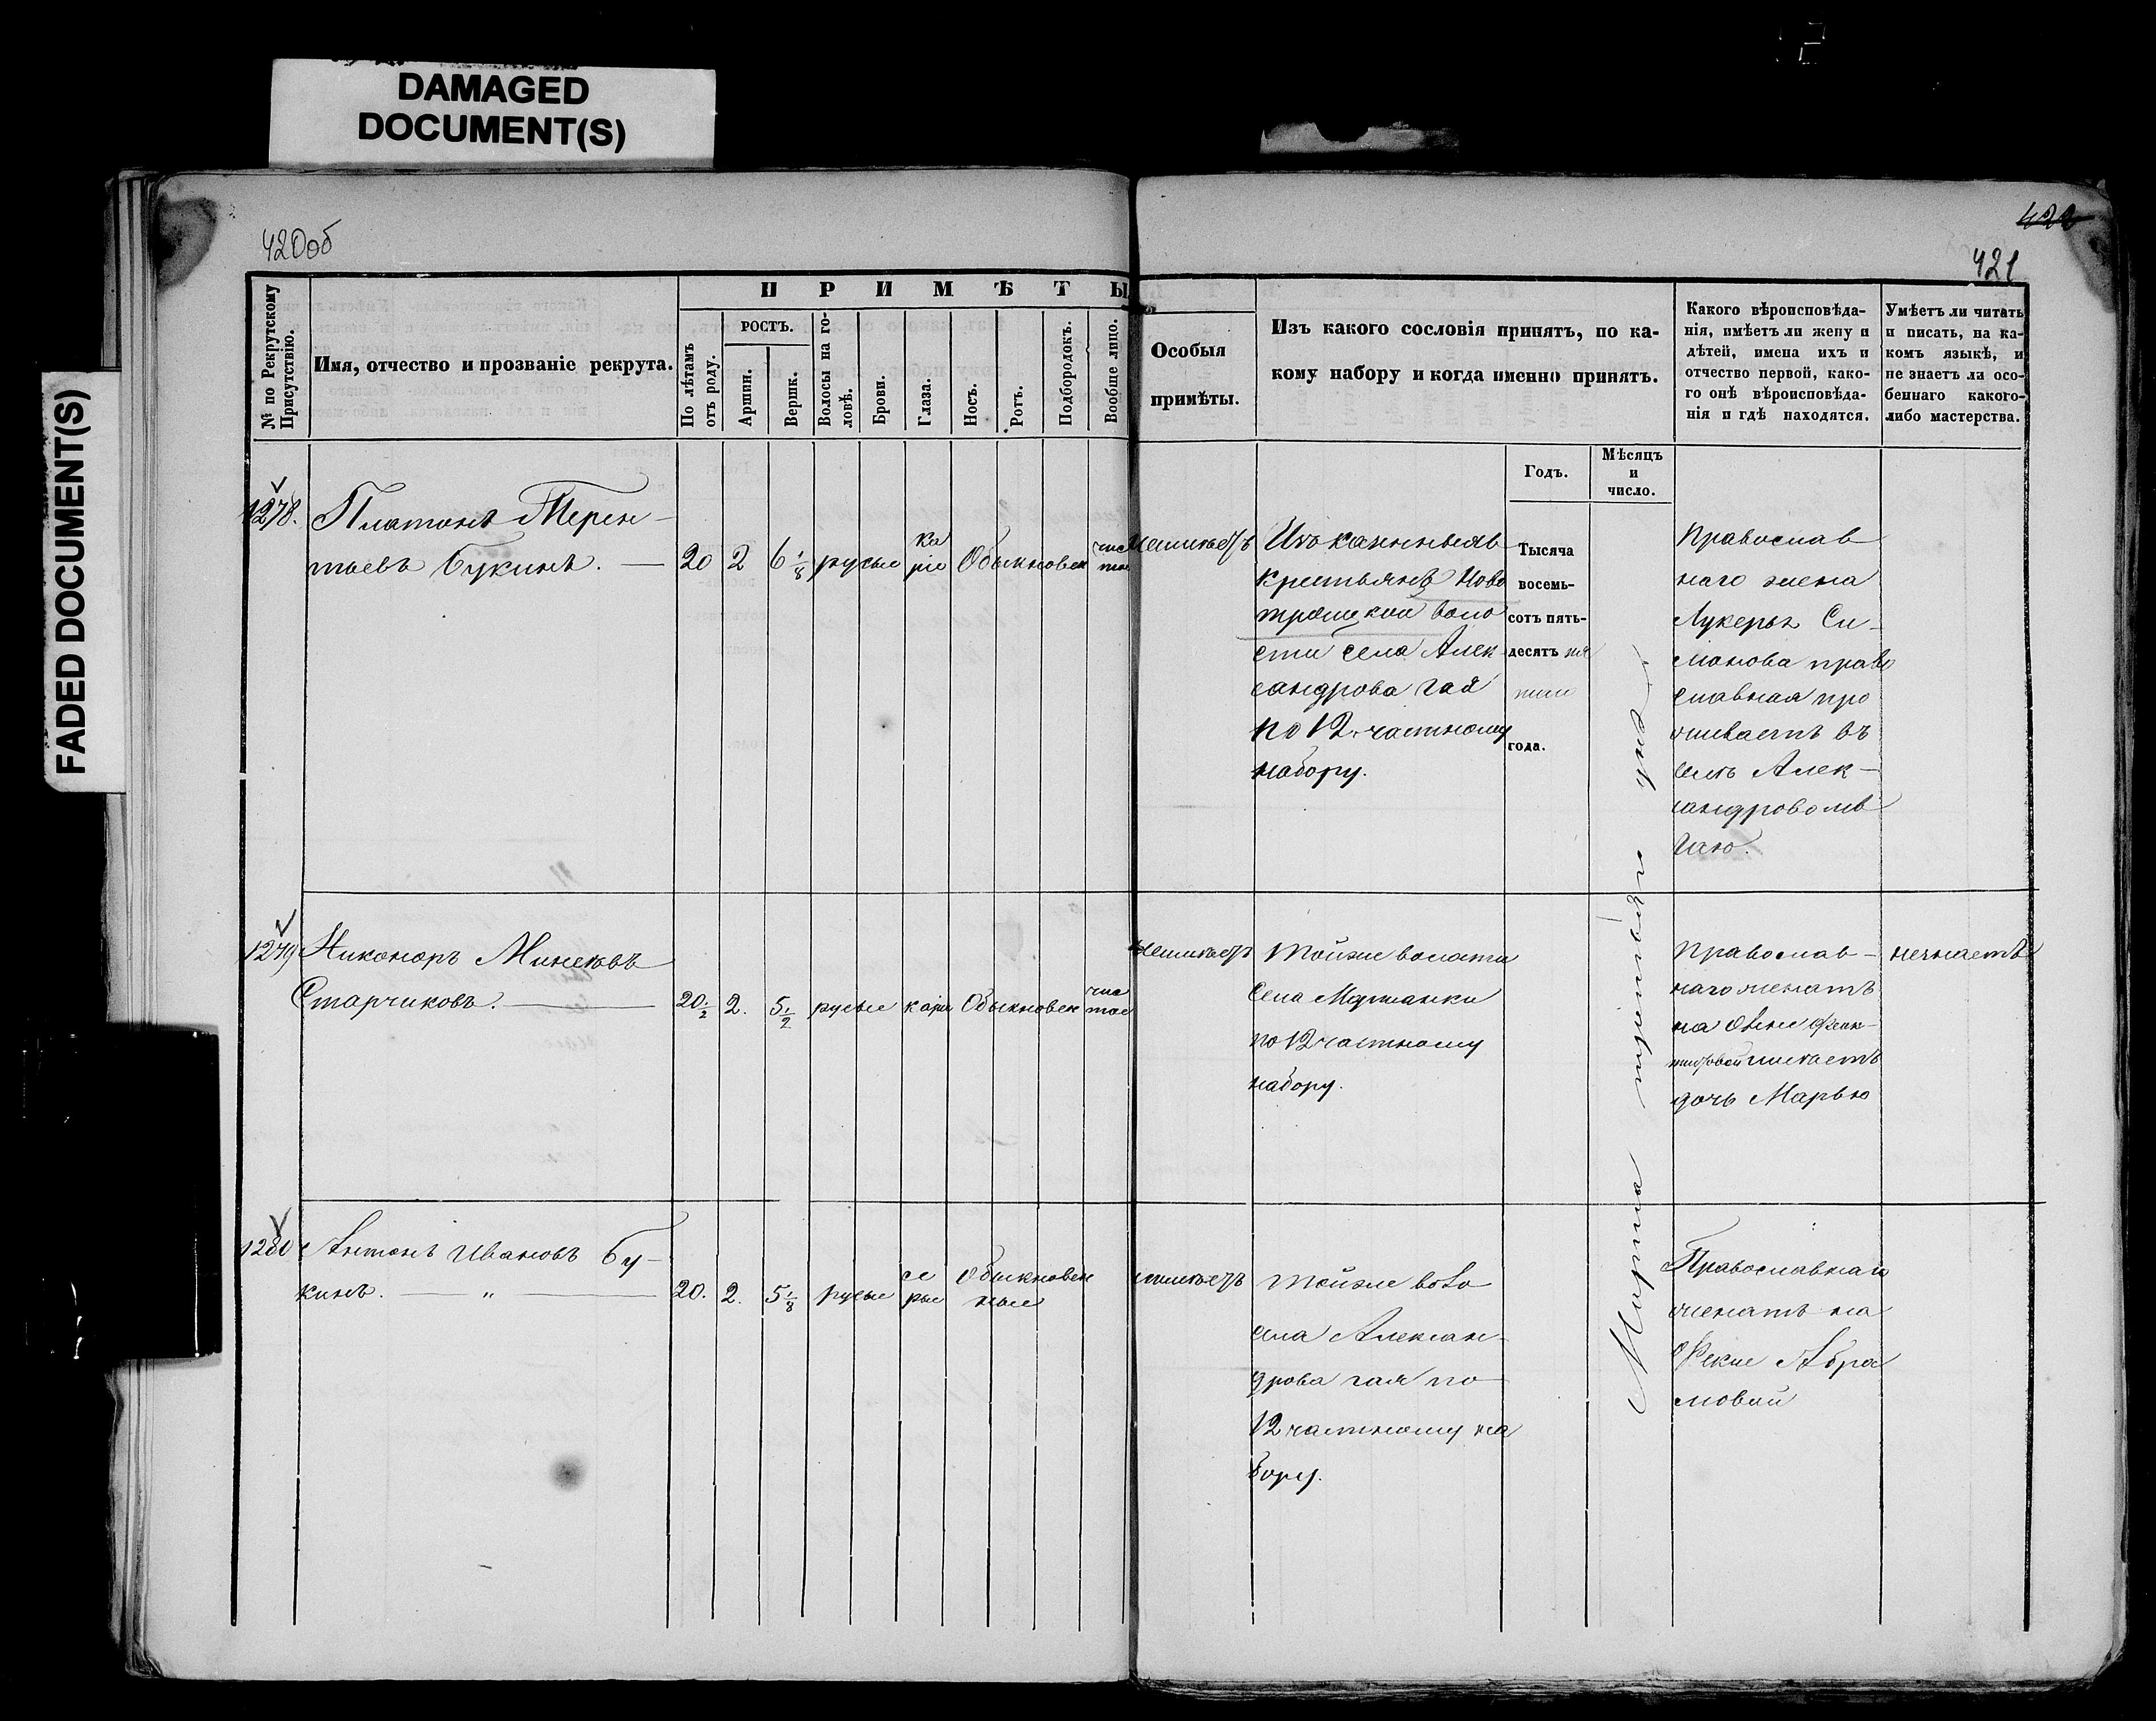 DAMAGED
DOCUMENT(S)
FADED DOCUMENT(S)
420об
422
421
№ по Рекрутскому Присутствію.
Имя, отчество и прозваніе рекрута.
ПРИМѢТЫ
По лѣтамъ отъ роду.
РОСТЪ.
Аршин.
Вершк.
Волосы на головѣ.
Брови.
Глаза.
Носъ.
Ротъ.
Подбородокъ.
Вообще лицо.
Особыя
примѣты.
Изъ какого сословія принятъ, по ка-
кому набору и когда именно принятъ.
Какого вѣроисповѣда-
нія, имѣетъ ли жену и
дѣтей, имена ихъ и
отчество первой, како-
го онѣ вѣроисповѣда-
нія и гдѣ находятся.
Умѣетъ ли читать
и писать, на ка-
комъ языкѣ, и
не знаетъ ли осо-
беннаго какого-
либо мастерства.
Годъ.
Мѣсяцъ
и
число.
1278.
Платонъ Терен-
тьевъ Букинъ. —
20 2 6 1/8 русые ка
ріе Обыкновен чис
тое
неимѣетъ
Изъ казенныхъ
крестьянъ Ново
троицкой воло
сти села Алек
сандрова Гая
по 12. частному
набору.
Тысяча
восемь-
сотъ пять-
десятъ пя
таго
года.
Марта третьяго дня
Православ
наго жена
Лукерья Си-
монова право
славная про
живаетъ въ
селѣ Алек-
сандровомъ
Гаю.
1279
Никоноръ Минеевъ
Старчиковъ. —
20. 1/2 2. 5 1/2 русые каріе Обыкновен чис
тое
неимѣетъ
Тойже волости
села Моршанки
по 12 частному
набору.
Православ-
наго женатъ
на
имѣетъ
дочь Марью
незнаетъ
1280
Антонъ Ивановъ Бу-
кинъ. — " —
20. 2. 5 1/8 русые се
рые Обыкновен
ные
неимѣетъ
Тойже воло
села Алексан-
дрова гая по
12 частному на
бору.
Православнаго
женатъ на
Фекле Абра
мовой